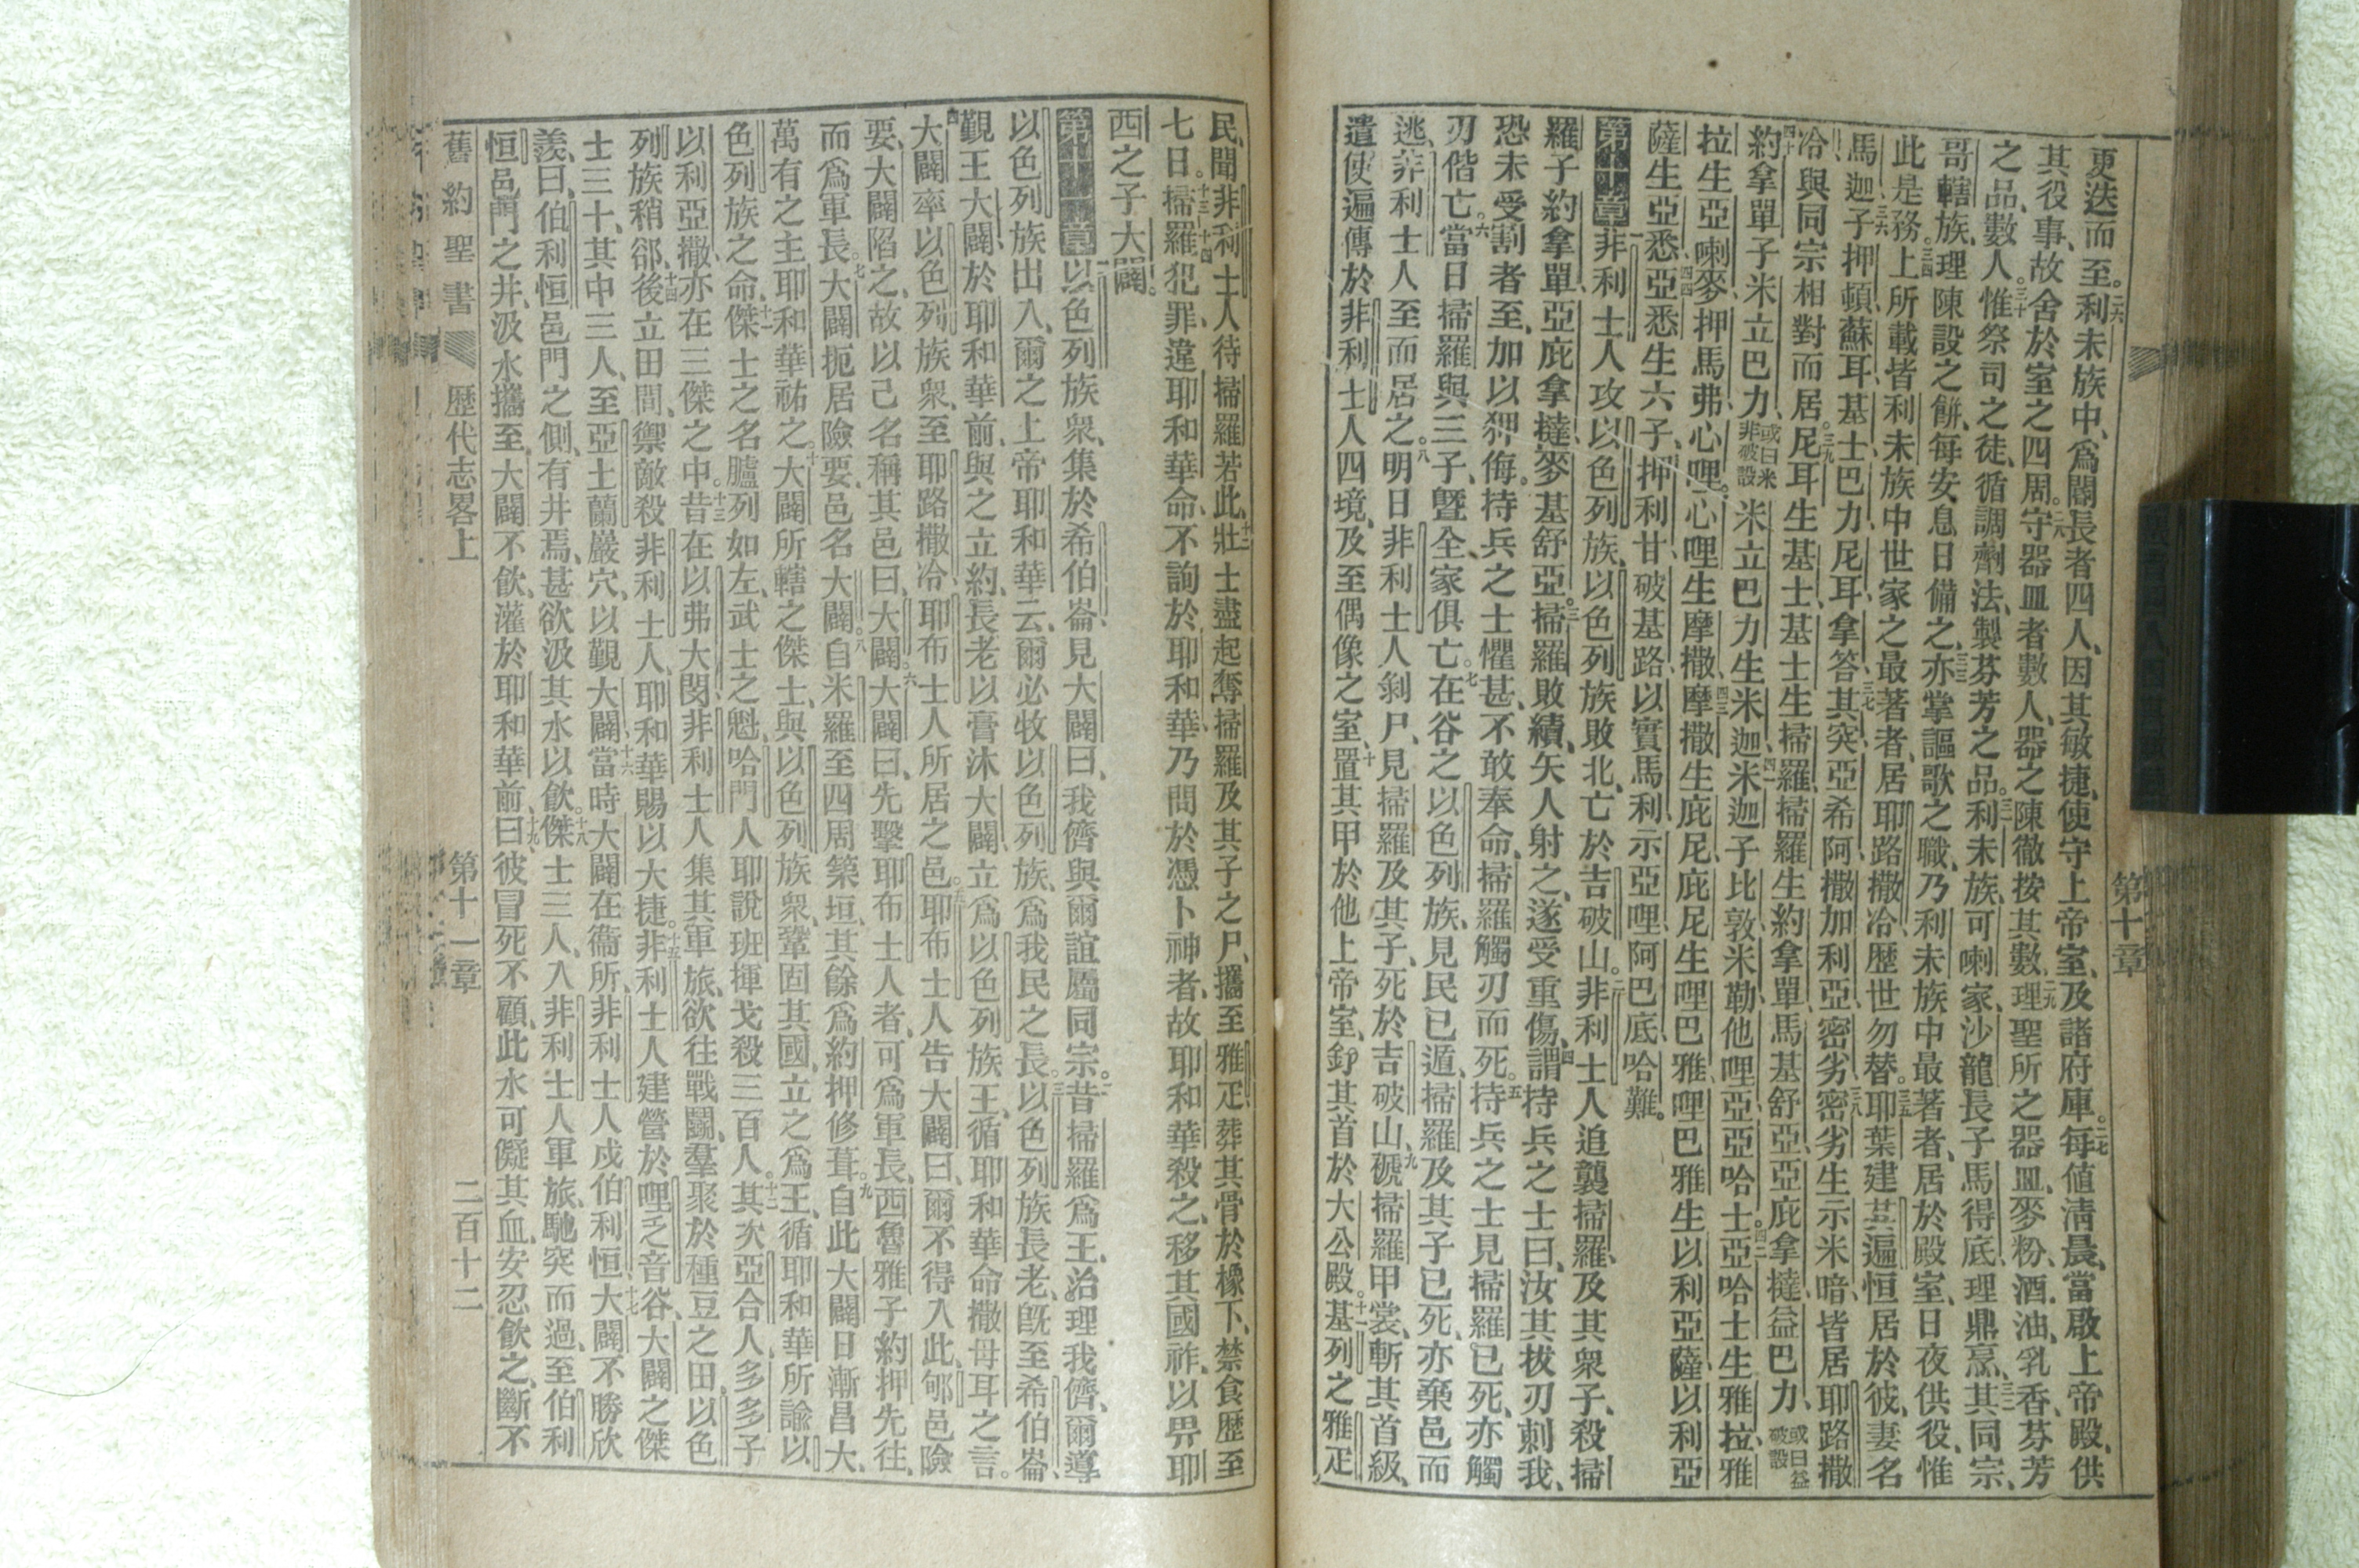 更迭而至。二六利未族中、爲閽長者四人、因其敏捷、使守上帝室、及諸府庫。二七每値淸晨、當啟上帝殿、供
其役事、故舍於室之四周。二八守器皿者數人、器之陳徹、按其數、二九理聖所之器皿、麥粉、酒、油、乳香、芬芳
之品、數人。三十惟祭司之徒、循調劑法、製芬芳之品。三一利未族、可喇家、沙龍長子馬得底、理鼎烹、三二其同宗、
哥轄族、理陳設之餅、每安息日備之、三三亦掌謳歌之職、乃利未族中最著者、居於殿室、日夜供役、惟
此是務。三四上所載皆利未族中世家之最著者、居耶路撒冷、歷世勿替。三五耶葉建其遍、恒居於彼、妻名
馬迦、三六子押頓、蘇耳、基士、巴力、尼耳、拿答、三七其突、亞希阿、撒加利亞、密劣、三八密劣生示米暗、皆居耶路撒
冷、與同宗相對而居。三九尼耳生基士、基士生掃羅、掃羅生約拿單、馬基舒亞、亞庇拿撻、益巴力、或曰益破設
四十約拿單子米立巴力、或曰米非破設米立巴力生米迦、四一米迦子比敦、米勒、他哩亞、亞哈士。四二亞哈士生雅拉、雅
拉生亞喇麥、押馬弗、心哩。心哩生摩撒、四三摩撒生庇尼、庇尼生哩巴雅、哩巴雅生以利亞薩、以利亞
薩生亞悉、四四亞悉生六子、押利甘、破基路、以實馬利、示亞哩、阿巴底、哈難。
第十章非利士人攻以色列族、以色列族敗北、亡於吉破山。二非利士人追襲掃羅、及其衆子、殺掃
羅子約拿單、亞庇拿撻、麥基舒亞。三掃羅敗績、矢人射之、遂受重傷、四謂持兵之士曰、汝其拔刃刺我、
恐未受割者至、加以狎侮。持兵之士懼甚、不敢奉命、掃羅觸刃而死。五持兵之士見掃羅已死、亦觸
刃偕亡。六當日掃羅與三子、曁全家俱亡。七在谷之以色列族、見民已遁、掃羅及其子已死、亦棄邑而
逃、非利士人至而居之。八明日非利士人剝尸、見掃羅及其子、死於吉破山、九褫掃羅甲裳、斬其首級、
遣使遍傳於非利士人四境、及至偶像之室、十置其甲於他上帝室、釘其首於大公殿。十一基列之雅疋
第十章
民、聞非利士人待掃羅若此、十二壯士盡起、奪掃羅及其子之尸、攜至雅疋、葬其骨於橡下、禁食歷至
七日。十三掃羅犯罪、違耶和華命、不詢於耶和華、乃問於憑卜神者、十四故耶和華殺之、移其國祚、以畀耶
西之子大闢。
第十一章以色列族衆、集於希伯崙、見大闢曰、我儕與爾誼屬同宗。二昔掃羅爲王、治理我儕、爾導
以色列族出入、爾之上帝耶和華云、爾必牧以色列族、爲我民之長。三以色列族長老、旣至希伯崙、
覲王大闢、於耶和華前、與之立約、長老以膏沐大闢、立爲以色列族王、循耶和華命撒母耳之言。
四大闢率以色列族衆、至耶路撒冷、耶布士人所居之邑。五耶布士人告大闢曰、爾不得入此、郇邑險
要、大闢陷之、故以己名稱其邑曰、大闢。六大闢曰、先擊耶布士人者、可爲軍長、西魯雅子約押先往、
而爲軍長。七大闢扼居險要、邑名大闢。八自米羅至四周築垣、其餘爲約押修葺。九自此大闢日漸昌大、
萬有之主耶和華祐之。十大闢所轄之傑士、與以色列族衆、鞏固其國、立之爲王、循耶和華所諭以
色列族之命、十一傑士之名臚列如左、武士之魁哈門人耶說班、揮戈殺三百人。十二其次亞合人、多多子
以利亞撒、亦在三傑之中。十三昔在以弗大閔、非利士人集其軍旅、欲往戰鬬、羣聚於種豆之田、以色
列族稍卻、十四後立田間、禦敵殺非利士人、耶和華賜以大捷。十五非利士人建營於哩乏音谷、大闢之傑
士三十、其中三人、至亞土蘭巖穴、以覲大闢、十六當時大闢在衞所、非利士人戍伯利恒、十七大闢不勝欣
羨、曰、伯利恒邑門之側、有井焉、甚欲汲其水以飮。十八傑士三人、入非利士人軍旅、馳突而過、至伯利
恒邑門之井、汲水攜至、大闢不飮、灌於耶和華前、十九曰、彼冒死不顧、此水可儗其血、安忍飮之、斷不
舊約聖書 歷代志畧上 第十一章 二百十二